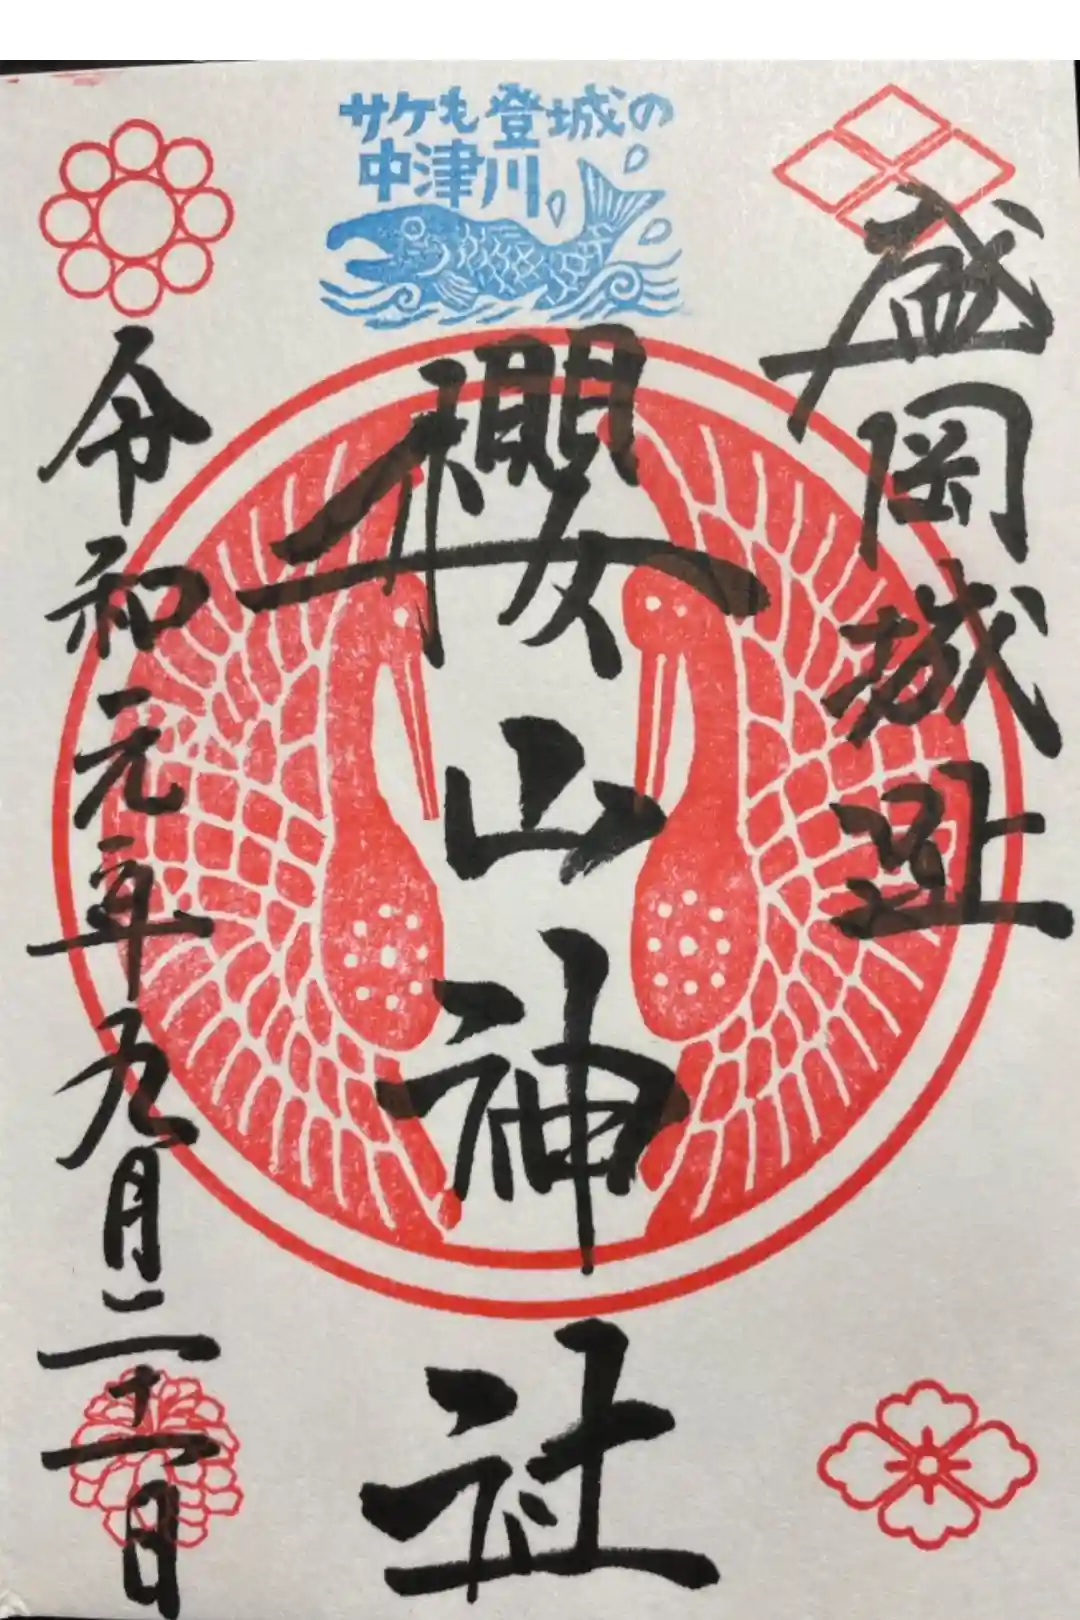 サケも登城の
中津川
盛岡城址
櫻山神社
令和元年九月二十一日